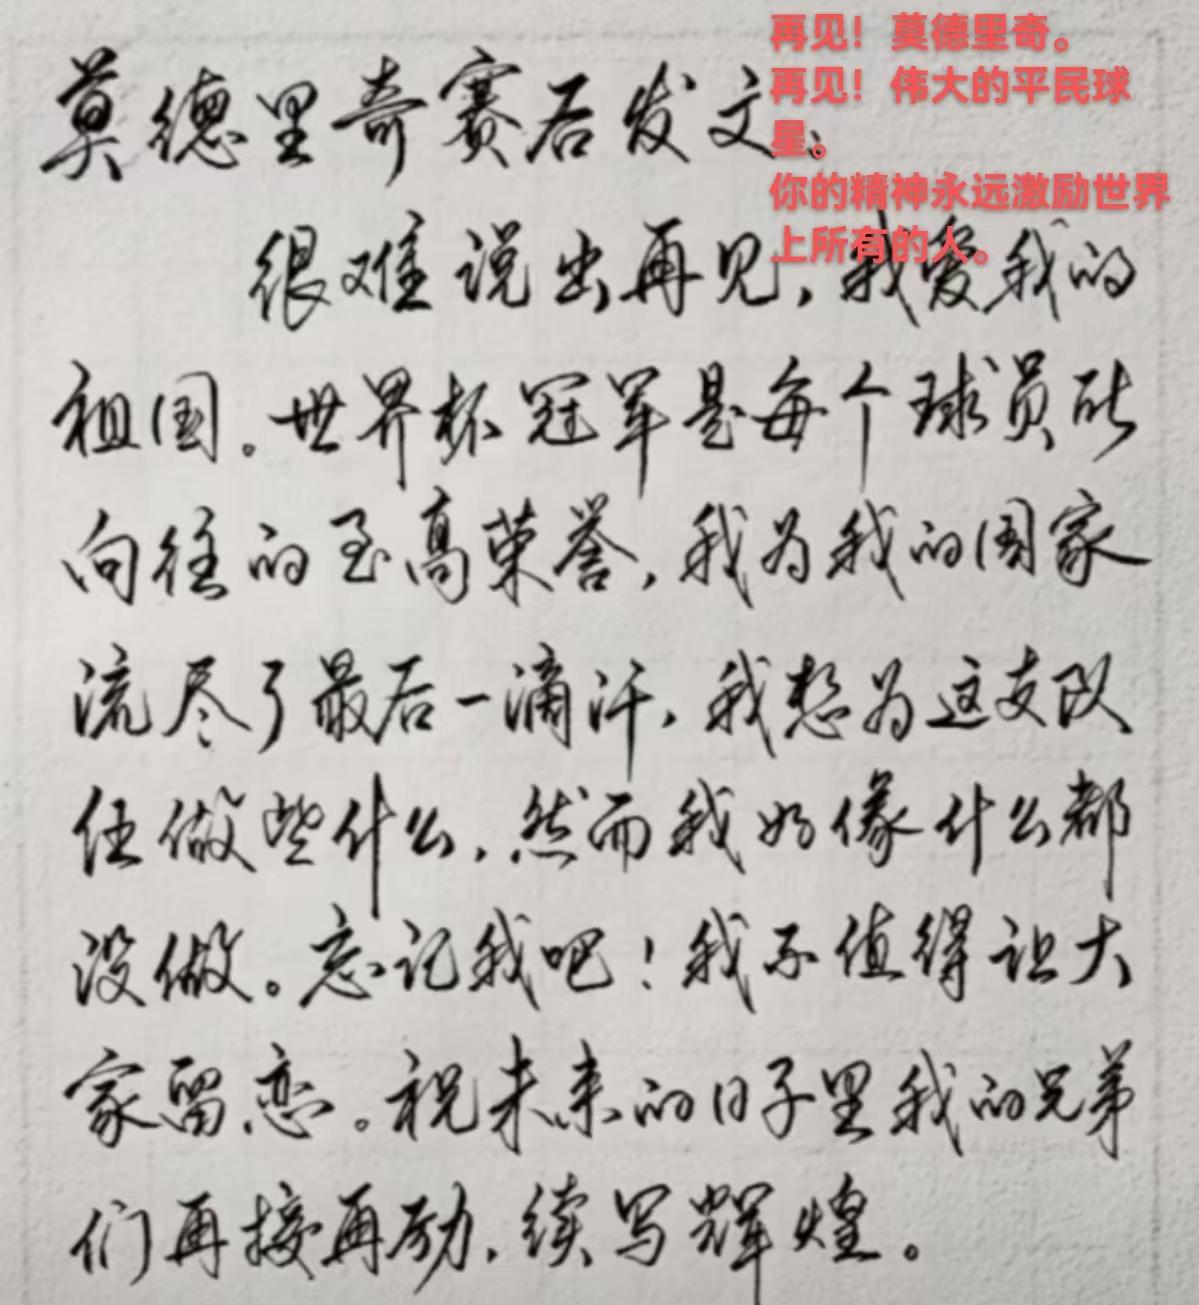 再见！莫德里奇。
再见！伟大的平民球
星。
你的精神永远激励世界
上所有的人。
莫德里奇赛后发文：
很难说出再见，我爱我的
祖国。世界杯冠军是每个球员所
向往的至高荣誉，我为我的国家
流尽了最后一滴汗，我想为这支队
伍做些什么，然而我好像什么都
没做。忘记我吧！我不值得让大
家留恋。祝未来的日子里我的兄弟
们再接再励，续写辉煌。